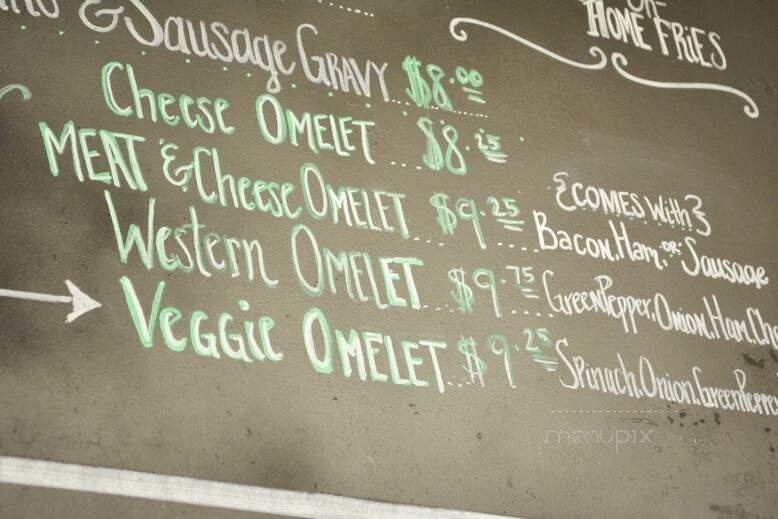 & Sausage Gravy $8.00
or
Home Fries
Cheese Omelet $8.25
Meat & Cheese Omelet $9.25
{Comes with}
Bacon, Ham, or Sausage
Western Omelet $9.75 Green Pepper, Onion, Ham,
Veggie Omelet $9.25 Spinach, Onion, Green
menupix